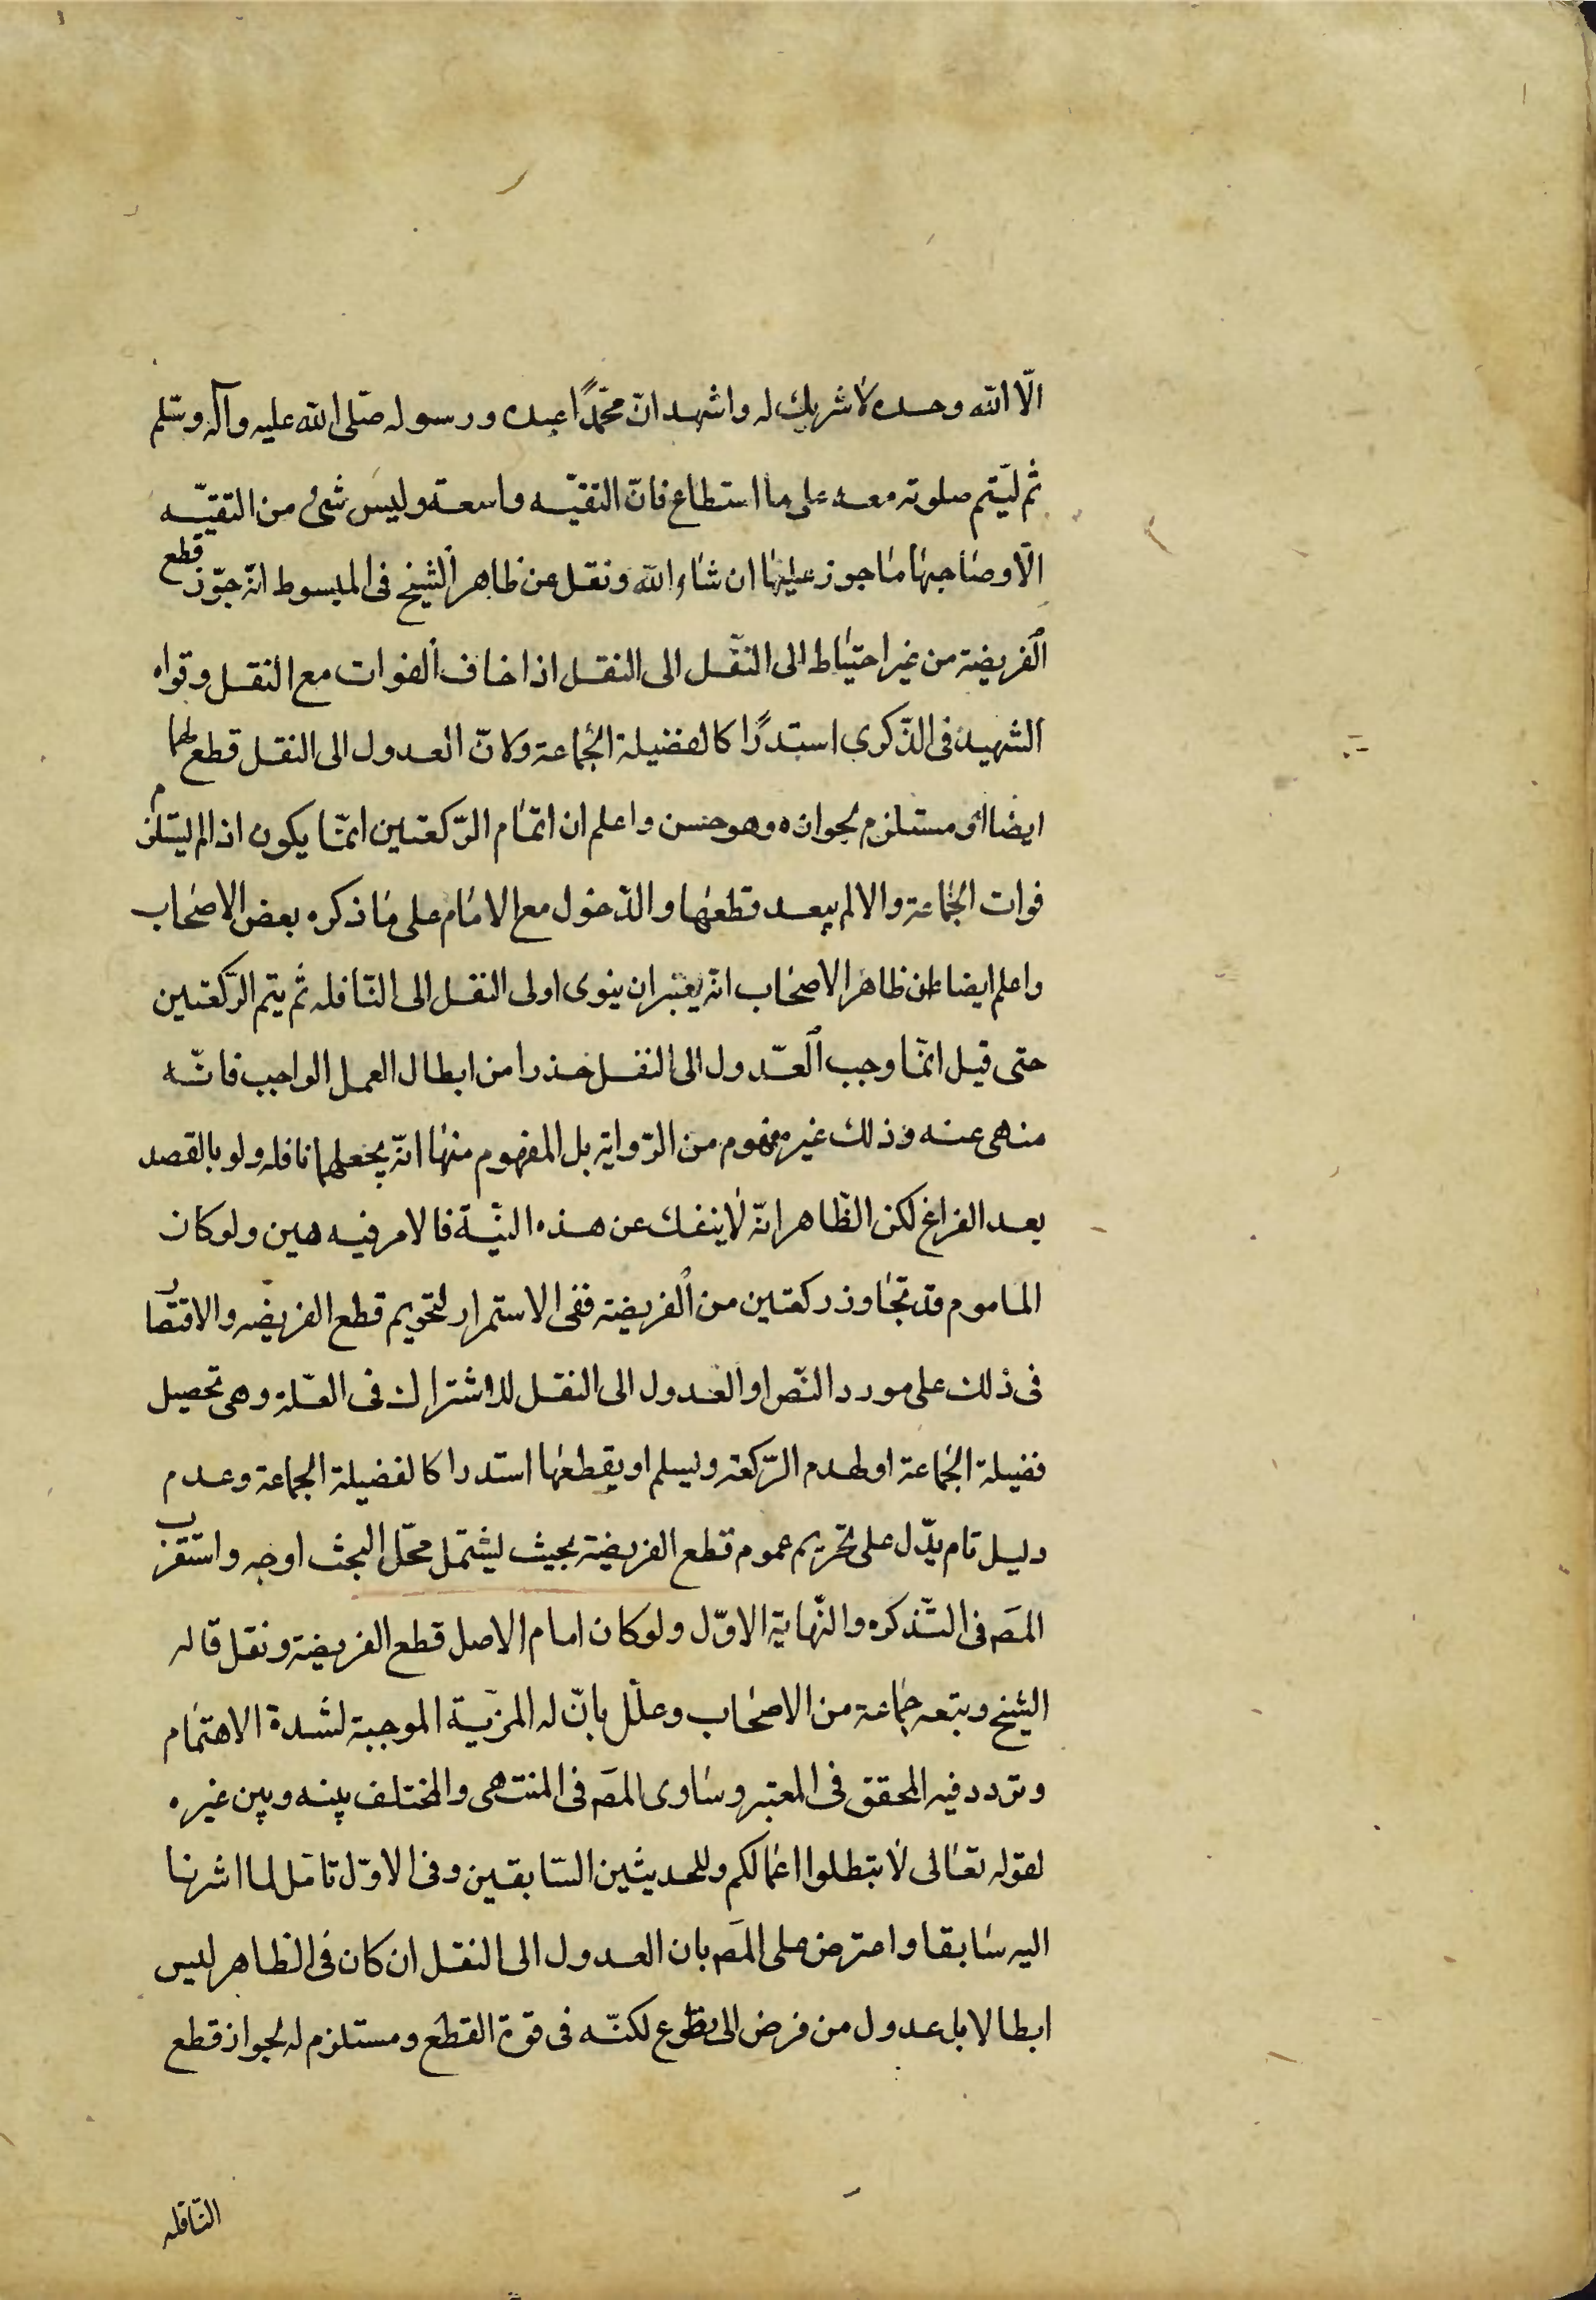 الّا اللّه وحده لا شريك له واشهد انّ محمّدًا عبده ورسوله صلّى اللّه عليه وآله وسلم
ثم ليّتم صلوته معه على ما استطاع فانّ التقيّه واسعة وليس شئ من التقيّه
الّا وصاحبها ماجوز عليها ان شاء اللّه ونقل عن ظاهر الشيخ فى المبسوط انّه جوّز قطع
الفريضة من غير احتياط الى النقل الى النقل اذا خاف الفوات مع النقل وقواه
الشهيد فى الذّكرى استدرًا كا لفضيلة الجماعة ولانّ العدول الى النقل قطع لها
ايضا او مستلزم لجوازه وهو حسن واعلم ان اتمام الرّكعتين انمّا يكون اذا لم يستلزم
فوات الجماعة والا لم يبعد قطعها والدّخول مع الامام على ما ذكره بعض الاصحاب
واعلم ايضا ان ظاهر الاصحاب انّه يعتبر ان ينوى اولى النقل الى النّافله ثم يتم الرّكعتين
حتى قيل انمّا وجب العّدول الى النفل حذرا من ابطال العمل الواجب فانّه
منهى عنه وذلك غير مفهوم من الرّواية بل المفهوم منها انّه يجعلهما نافله ولو بالقصد
بعد الفراغ لكن الظّاهر انّه لا ينفك عن هذه النيّة فالامر فيه هين ولو كان
الماموم قد تجاوز ركعتين من الفريضة ففى الاستمرار لتحريم قطع الفريضه والاقتصار
فى ذلك على مورد النّص او العدول الى النقل للاشتراك فى العّلة وهى تحصيل
فضيلة الجماعة او لهدم الرّكعة وليسلم او يقطعها استدراكا لفضيلة الجماعة وعدم
دليل تام يدّل على تحريم عموم قطع الفريضة بحيث ليشتمل محّل البحث اوجه واستقرب
المصَ فى التّذكره والنّهاية الاوّل ولو كان امام الاصل قطع الفريضة ونقل قاله
الشيخ وبتعه جماعة من الاصحاب وعلّل بانّ له المزيّة الموجبة لشدة الاهتمام
وتردد فيه المحقق فى المعتبر وساوى المصَ فى المنتهى والمختلف بينه وبين غيره
لقوله تعالى لا تبطلوا اعمالكم وللحديثين السّابقين وفى الاوّل تامّل لما اشرنا
اليه سابقا واعترض على المصَ بان العدول الى النقل ان كان فى الظاهر ليس
ابطالا بل عدول من فرض الى تطوع لكنّه فى قوة القطع ومستلزم له لجواز قطع
النّافله